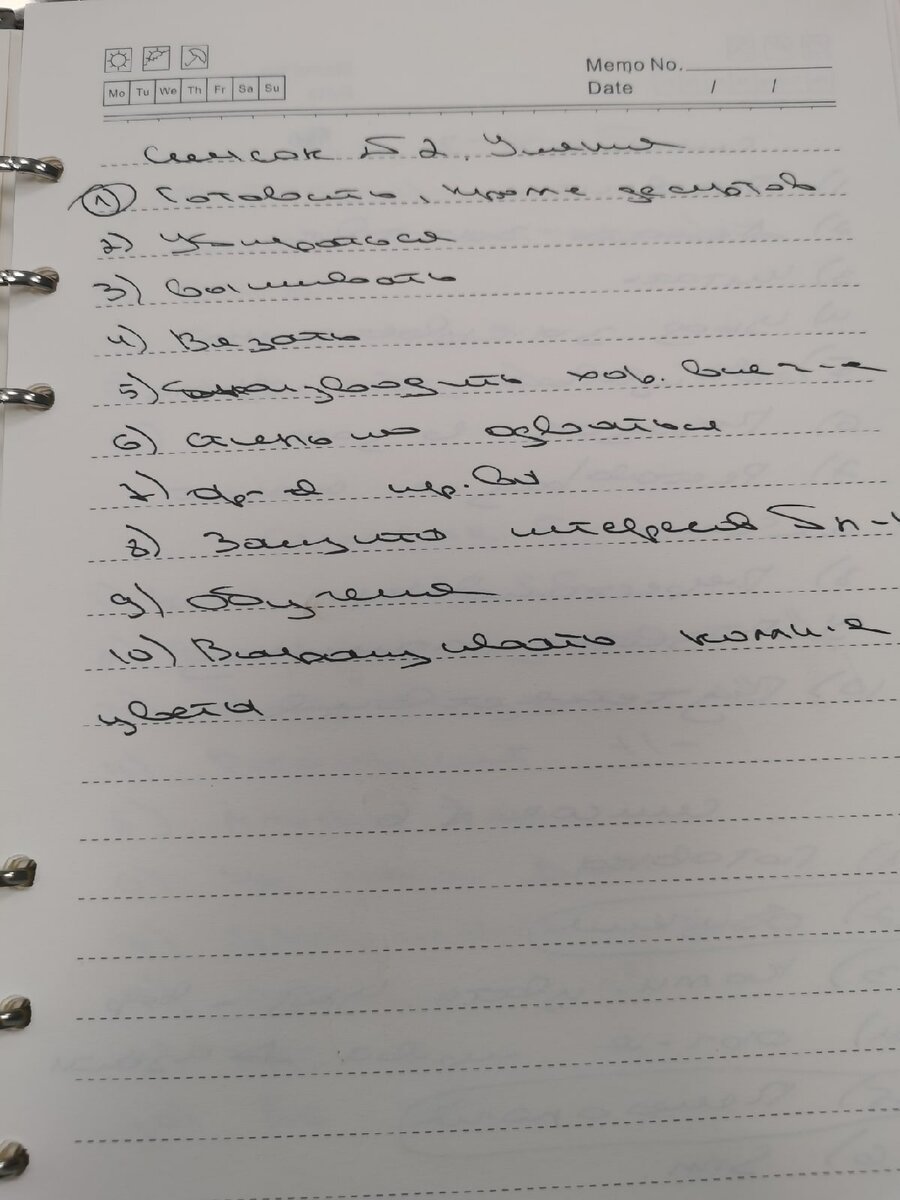 Mo Tu We Th Fr Sa Su
Memo No.
Date / /
Список №2. Умения
1) Готовить, кроме десертов
2) Убираться
3) Вышивать
4) Вязать
5) производить хор. впеч-е
6) стильно одеваться
7)
8) Защита интересов
9) обучение
10) Выращивать комн-е
цветы